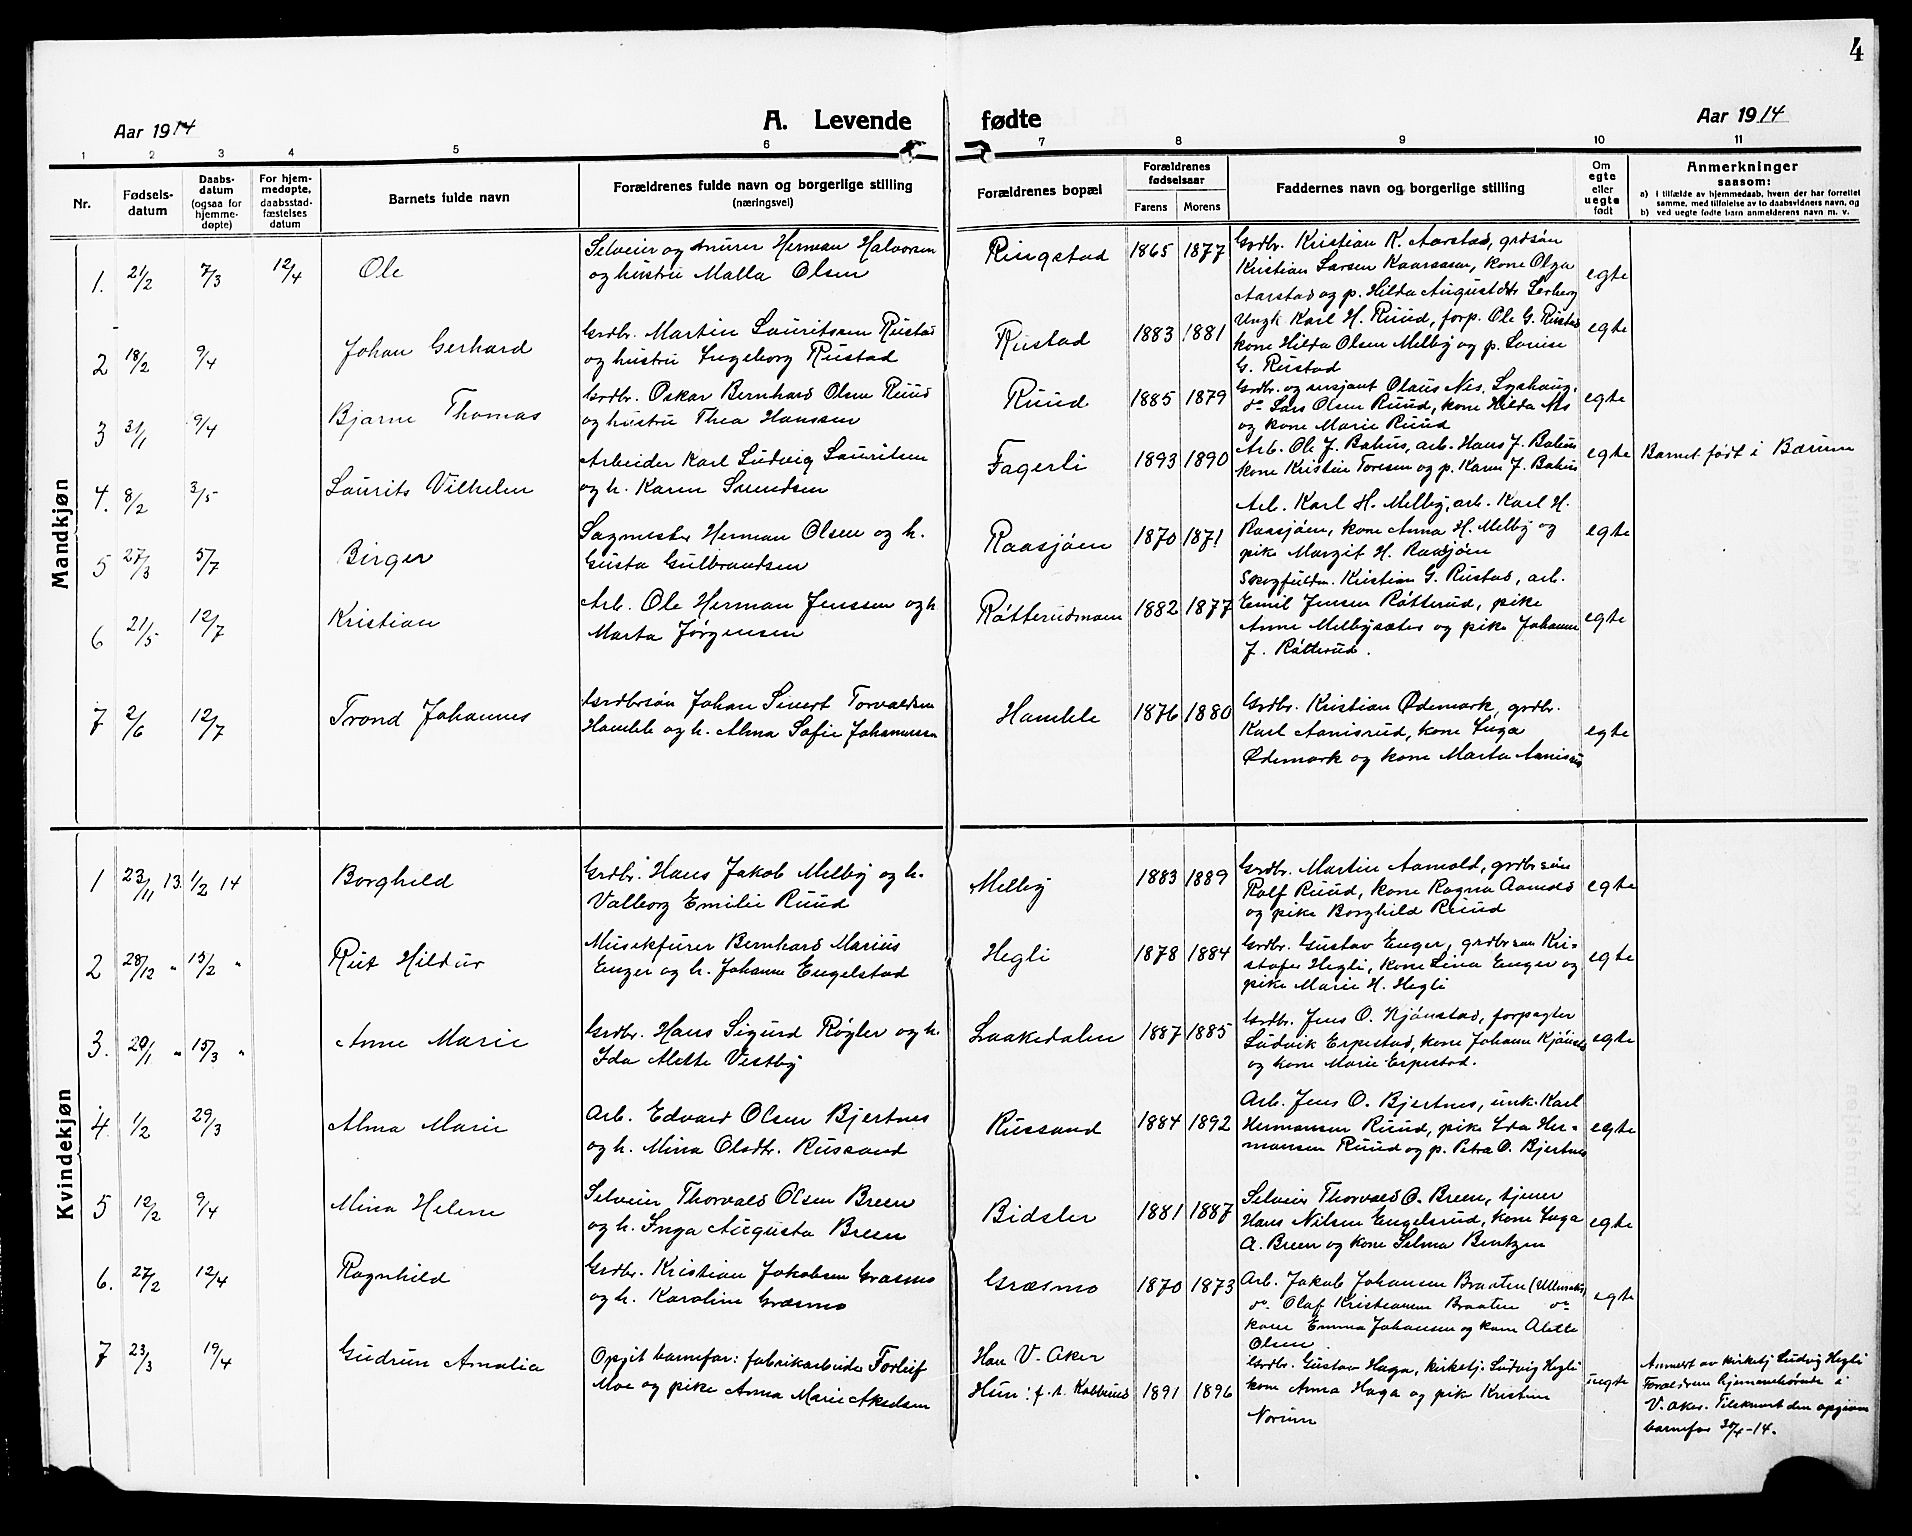 4
Aar 1914 A. Levende fødte Aar 1914
1 2 3 4 5 6 7 8 9 10 11
Nr. Fødselsdatum Daabsdatum (ogsaa for hjemmedøpte) For hjemmedøpte, daabsstadfæstelses datum Barnets fulde navn Forældrenes fulde navn og borgerlige stilling (næringsvei) Forældrenes bopæl Forældrenes fødselsaar Farens Morens Faddernes navn og borgerlige stilling Om egte eller uegte født Anmerkninger saasom:
a) i tilfælde av hjemmedaab, hvem der har forrettet samme, med tilføielse av to daabsvidners navn, og
b) ved uegte fødte barn anmelderens navn m. v.
Mandkjøn
1. 21/2 7/3 12/4 Ole
Selveier og murer Herman Halvorsen
og hustru Malla Olsen
Ringstad 1865 1877
Grdbr. Kristian K. Aarstad, grdsøn
Kristian Larsen Kaarssen, kone Olga
Aarstad og p. Hilda Augustdtr
egte
2 18/2 9/4 Johan Gerhard
Grdbr. Martin Lauritsen Rustad
og hustru Ingeborg Rustad
Rustad 1883 1881
Ungk Karl H. Ruud, forp. Ole G. Rustad
kone Hilda Olsen Melby og p. Louise
G. Rustad
egte
3 31/1 9/4 Bjarne Thomas
Grdbr. Oskar Bernhard Olsen Ruud
og hustru Thea Hanssen
Ruud 1885 1879
Grdbr. og sersjant Olaus Nes. Lyshaug.
do Lars Olsen Ruud, kone Hilda Nes
og kone Marie Ruud
egte
4. 8/2 3/5 Laurits Vilhelm
Arbeider Karl Ludvig Lauritsen
og h. Karen Svendsen
Fagerli 1893 1890
Arb. Ole J. Bahus, arb. Hans J. Bahus
kone Kristine Toresen og p. Karen J. Bahus
egte Barnet født i Bærum
5 27/3 5/7 Birger
Sagmester Herman Olsen og h.
Gusta Gulbrandsen
Raasjøen 1870 1871
Arb. Karl H. Melby, arb. Karl H.
Raasjøen, kone Anna H. Melby og
pike Margit H. Raasjøen
egte
6 21/5 12/7 Kristian
Arb. Ole Herman Jenssen og h
Marta Jørgensen
Røtterudmoen 1882 1877
Skogfuldm. Kristian G. Rustad, arb.
Emil Jensen Røtterud, pike
Anne Melbysæter og pike Johanne
J. Røtterud.
egte
7 2/6 12/7 Trond Johannes
Grdbrsøn Johan Sivert Torvaldsen
Hamble og h. Alma Sofie Johannessen
Hamble 1876 1880
Grdbr. Kristian Ødemark, grdbr.
Karl Aanisrud, kone Inga
Ødemark og kone Marta Aanisrud
egte
Kvindekjøn
1 23/11 13. 1/2 14 Borghild
Grdbr. Hans Jakob Melby og h.
Valborg Emilie Ruud
Melby 1883 1889
Grdbr. Martin Aamold, grdbrsøn
Rolf Ruud, kone Ragna Aamold
og pike Borghild Ruud
egte
2 28/12 " 15/2 " Rut Hildur
Musikfurer Bernhard Marius
Enger og h. Johanne Engelstad
Hegli 1878 1884
Grdbr. Gustav Enger, grdbrsøn Kri-
stofer Hegli, kone Lina Enger og
pike Marie H. Hegli
egte
3. 20/1 " 15/3 " Anne Marie
Grdbr. Hans Sigurd Røgler og h.
Ida Alette Vestby
Laakedalen 1887 1885
Grdbr. Jens O. Kjønstad, forpagter
Ludvik Erpestad, kone Johanne Kjønstad
og kone Marie Erpestad.
egte
4. 1/2 29/3 Alma Marie
Arb. Edvard Olsen Bjertnes
og h. Mina Olsdtr. Russand
Russand 1884 1892
Arb. Jens O. Bjertnes, unk. Karl
Hermansen Ruud, pike Ida Her-
mansen Ruud og p. Petra O. Bjertnes
egte
5 12/2 9/4 Mina Helene
Selveier Thorvald Olsen Breen
og h. Inga Augusta Breen
Bidsler 1881 1887
Selveier Thorvald O. Breen, tjener
Hans Nilsen Engelsrud, kone Inga
A. Breen og kone Selma Bentzen
egte
6. 27/2 12/4 Ragnhild
Grdbr. Kristian Jakobsen Græsmo
og h. Karoline Græsmo
Græsmo 1870 1873
Arb. Jakob Johansen Braaten (Ullensaker)
do. Olaf Kristiansen Braaten do
kone Emma Johansen og kone Alette
Olsen
egte
7 23/3 19/4 Gudrun Amalia
Opgit barnefar: fabrikarbeider Torleif
Moe og pike Anna Marie Akselsen
Han V. Aker
Hun: f. t. Kolbrud 1891 1896
Grdbr. Gustav Haga, kirketj. Ludvig Hegli
kone Anna Haga og pike Kristine
Norum
uegte
Anmeldt av kirketj Ludvig Hegli
Forældrene hjemmehørende i
V. Aker. Tilskrevet den opgivne
barnefar 30/4-14.